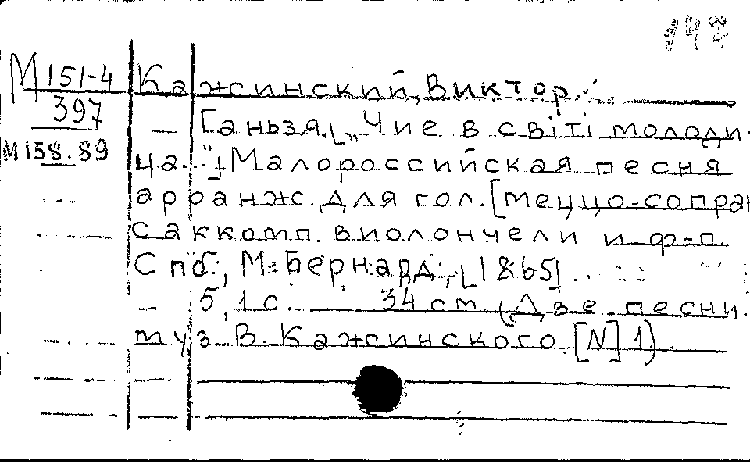 147
М 151-4 Кажинский, Виктор.
397 — Ганьзя. [„Чие в світі молоди-
М 158.89 ца..."] Малороссийская песня
арранж. для гол. [меццо-сопран
с аккомп. виолончели и ф-п.
Спб, М. Бернард, [1865]
— 5, 1 с. 34 см (Две песни.
муз В. Кажинского. [N] 1)